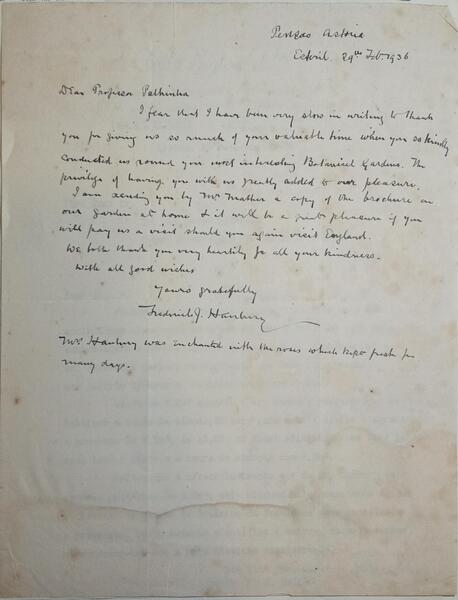 Pensao Astoria
Estoril. 29th Feb. 1936
Dear Professor Palhinha
I fear that I have been very slow in writing to thank
you for giving us so much of your valuable time when you so kindly
conducted us round your most interesting Botanical Gardens. The
privilege of having you with us greatly added to our pleasure.
I am sending you by Mr Mather a copy of the brochure on
our garden at home & it will be a great pleasure if you
will pay us a visit should you again visit England.
We both thank you very heartily for all your kindness.
With all good wishes
Yours gratefully
Frederick J. Hanbury
Mrs Hanbury was enchanted with the roses which kept fresh for
many days.